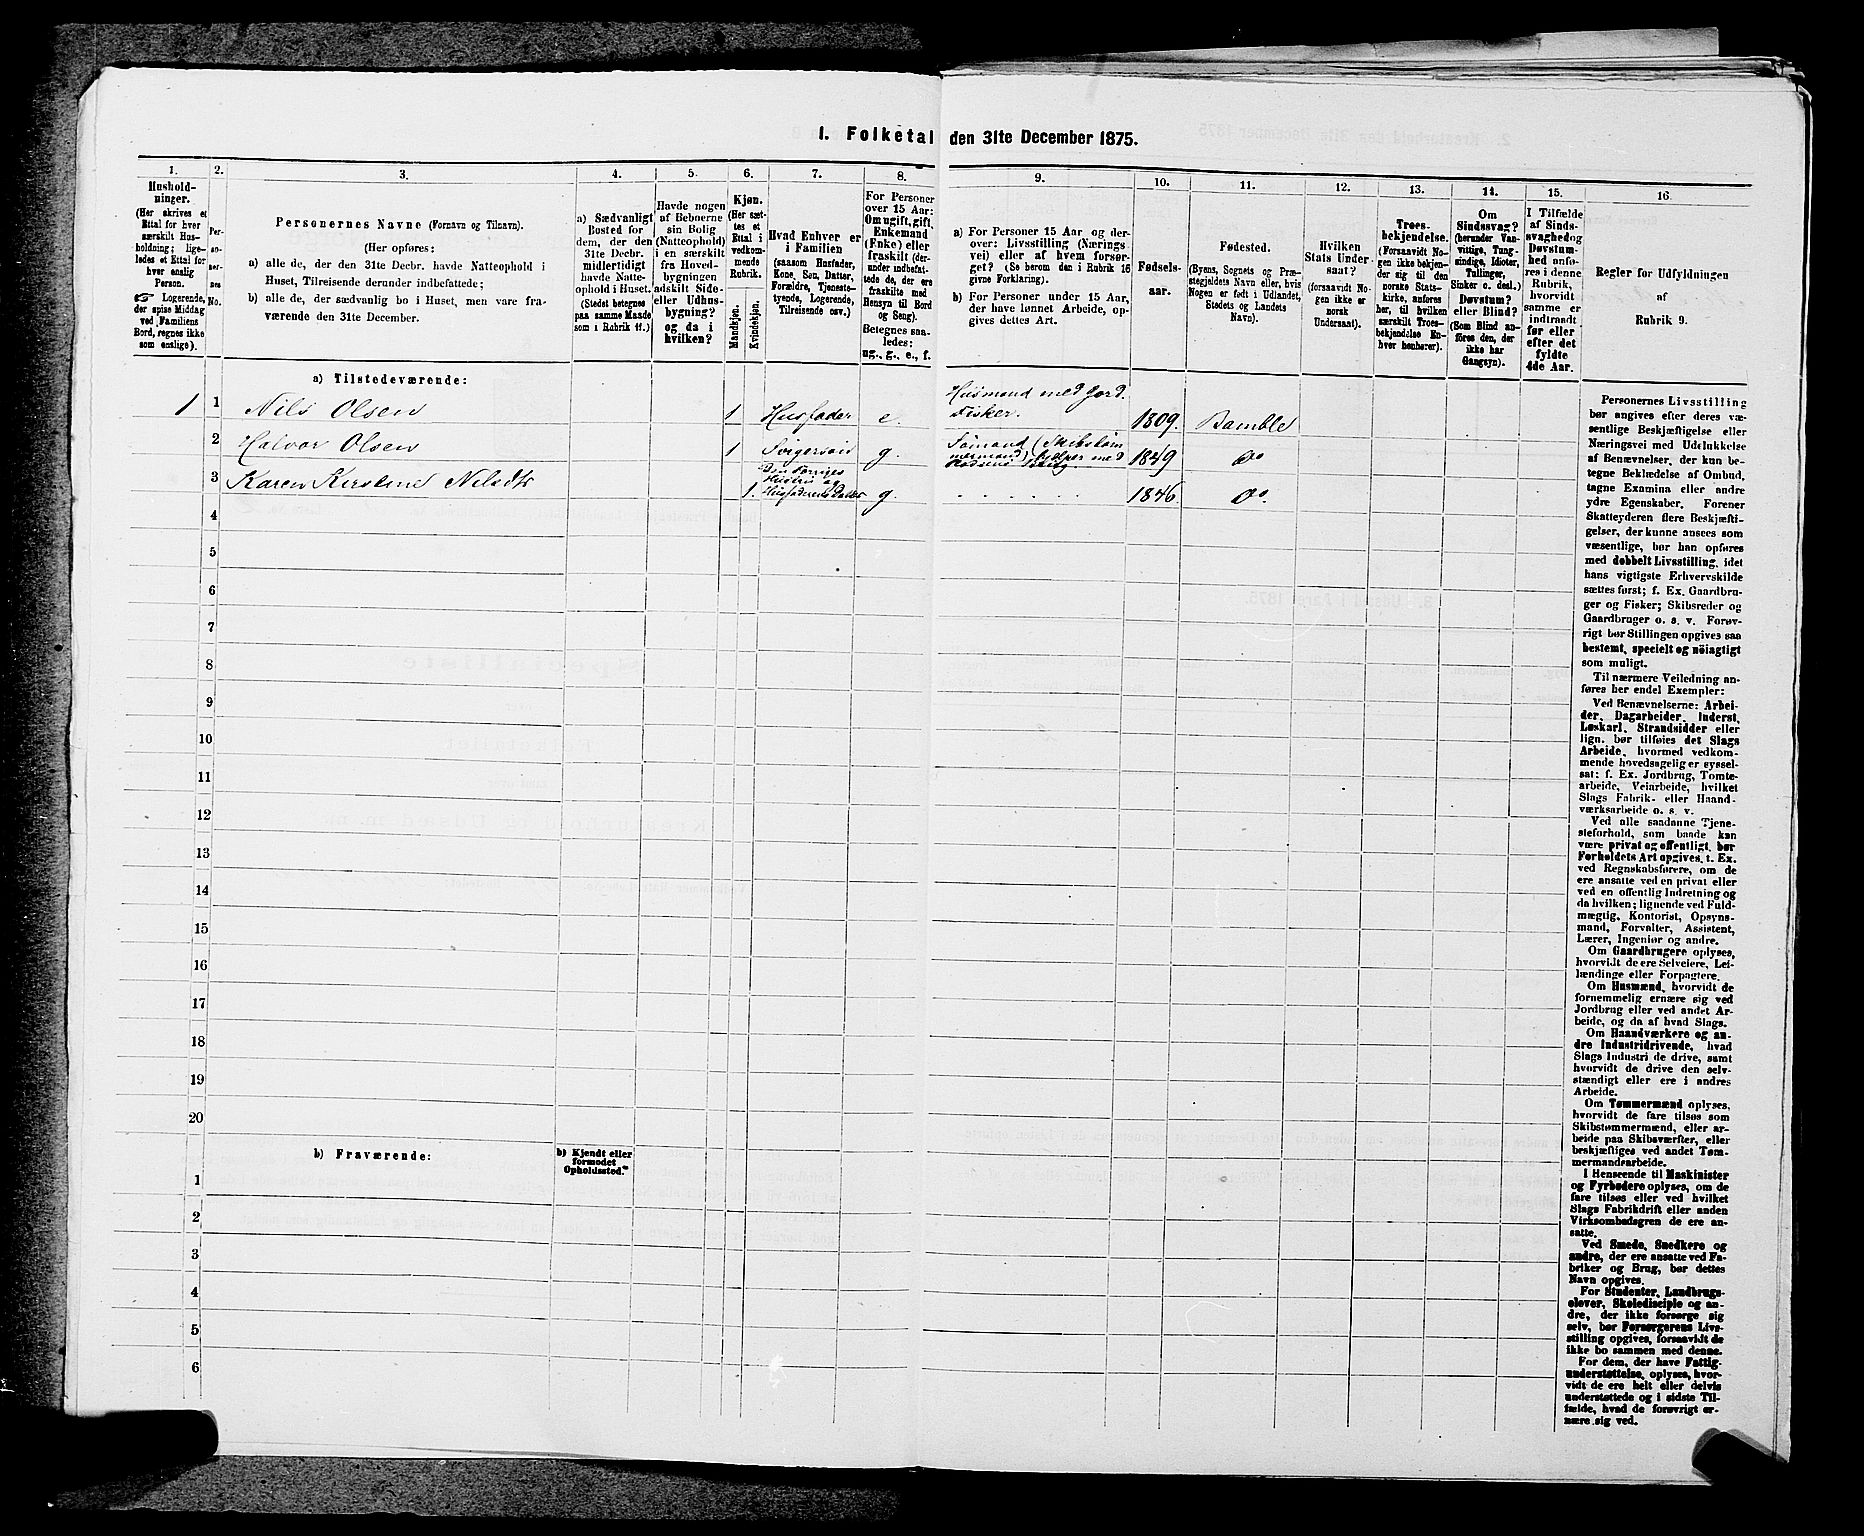 1. Folketal den 31te December 1875.
1.
Hushold-
ninger.
(Her skrives et
Ettal for hver
særskilt Hus-
holdning; lige-
ledes et Ettal for
hver enslig
Person.
☞ Logerende,
der spise Middag
ved Familiens
Bord, regnes ikke
som enslige).
2.
Per-
so-
ner-
nes
No.
3.
Personernes Navne (Fornavn og Tilnavn).
(Her opføres:
a) alle de, der den 31te Decbr. havde Natteophold i
Huset, Tilreisende derunder indbefattede;
b) alle de, der sædvanlig bo i Huset, men vare fra-
værende den 31te December.
4.
a) Sædvanligt
Bosted for
dem, der den
31te Decbr.
midlertidigt
havde Natte-
ophold i Huset.
(Stedet betegnes
paa samme Maade
som i Rubrik 11.)
5.
Havde nogen
af Beboerne
sin Bolig
(Natteophold)
i en særskilt
fra Hovedbygningen
adskilt Side-
eller Udhus-
bygning?
og da i
hvilken?
6.
Kjøn.
(Her sæt-
tes et
Ettal i
vedkom-
mende
Rubrik.
Mandkjøn.
Kvindekjøn.
7.
Hvad Enhver er
i Familien
(saasom Husfader,
Kone, Søn, Datter,
Forældre, Tjeneste-
tyende, Logerende,
Tilreisende osv.)
8.
For Personer
over 15 Aar:
Om ugift, gift,
Enkemand
(Enke) eller
fraskilt (der-
under indbefat-
tede de, der ere
fraskilte med
Hensyn til Bord
og Seng).
Betegnes saa-
ledes:
ug., g., e., f.
9.
a) For Personer 15 Aar og der-
over: Livsstilling (Nærings-
vei) eller af hvem forsør-
get? (Se herom den i Rubrik 16
givne Forklaring).
b) For Personer under 15 Aar,
der have lønnet Arbeide, op-
gives dettes Art.
10.
Fødsels-
aar.
11.
Fødested.
(Byens, Sognets og Præ-
stegjeldets Navn eller, hvis
Nogen er født i Udlandet,
Stedets og Landets
Navn).
12.
Hvilken
Stats Under-
saat?
(forsaavidt No-
gen ikke er
norsk
Undersaat).
13.
Troes-
bekjendelse.
(Forsaavidt No-
gen ikke bekjen-
der sig til den
norske Stats-
kirke, anføres
her, til hvilken
særskilt Troes-
bekjendelse En-
hver henhører).
14.
Om
Sindssvag?
(herunder Van-
vittige, Tung-
sindige, Idioter,
Tullinger,
Sinker o. desl.)
Døvstum?
eller Blind?
(Som Blind an-
føres den, der
ikke har
Gangsyn).
15.
I Tilfælde
af Sinds-
svaghed og
Døvstum-
hed anfø-
res i denne
Rubrik,
hvorvidt
samme er
indtraadt
før eller
efter det
fyldte
4de Aar.
16
Regler for Udfyldningen
af
Rubrik 9.
a) Tilstedeværende:
1 1 Nils Olsen 1 Husfader e. Husmand med Jord.
Fisker. 1809. Bamble
2 Halvor Olsen 1 Svigersøn g. Sømand (Skibstøm
mermand) hjelper med 1849 Do
3 Karen Kirstine Nilsdtr 1. Den Forriges
Hustru og
Husfaderens Datter g . . . . . . 1846. Do.
4
5
6
7
8
9
10
11
12
13
14
15
16
17
18
19
20
b) Fraværende:
b) Kjendt eller
formodet
Opholdssted.
1
2
3
4
5
6
Personernes Livsstilling
bør angives efter deres væ-
sentlige Beskjæftigelse eller
Næringsvei med Udelukkelse
af Benævnelser, der kun be-
tegne Beklædelse af Ombud,
tagne Examina eller andre
ydre Egenskaber. Forener
Skatteyderen flere Beskjæfti-
gelser, der kunne ansees som
væsentlige, bør han opføres
med dobbelt Livsstilling, idet
hans vigtigste Erhvervskilde
sættes først; f. Ex. Gaardbru-
ger og Fisker; Skibsreder og
Gaardbruger o. s. v. Forøv-
rigt bør Stillingen opgives saa
bestemt, specielt og nöiagtigt
som muligt.
Til nærmere Veiledning an-
føres her endel Exempler:
Ved Benævnelserne: Arbei-
der, Dagarbeider, Inderst,
Løskarl, Strandsidder eller
lign. bør tilføies det Slags
Arbeide, hvormed vedkom-
mende hovedsagelig er syssel-
sat: f. Ex. Jordbrug, Tomte-
arbeide, Veiarbeide, hvilket
Slags Fabrik- eller Haand-
værksarbeide o. s. v.
Ved alle saadanne Tjene-
steforhold, som baade kan
være privat og offentligt, bør
Forholdets Art opgives, t. Ex.
ved Regnskabsførere, om de
ere ansatte ved en privat eller
ved en offentlig Indretning og
da hvilken; lignende ved Fuld-
mægtig, Kontorist, Opsyns-
mand, Forvalter, Assistent,
Lærer, Ingeniør og andre.
Om Gaardbrugere oplyses,
hvorvidt de ere Selveiere, Lei-
lændinge eller Forpagtere.
Om Husmænd, hvorvidt de
fornemmelig ernære sig ved
Jordbrug eller ved andet Ar-
beide, og da af hvad Slags.
Om Haandværkere og an-
dre Industridrivende, hvad
Slags Industri de drive, samt
hvorvidt de drive den selv-
stændigt eller ere i andres
Arbeide.
Om Tømmermænd oplyses,
hvorvidt de fare tilsøs som
Skibstømmermænd, eller ar-
beide paa Skibsværfter, eller
beskjæftiges ved andet Tøm-
mermandsarbeide.
I Henseende til Maskinister
og Fyrbødere oplyses, om de
fare tilsøs eller ved hvilket
Slags Fabrikdrift eller anden
Virksomhedsgren de ere an-
satte.
Ved Smede, Snedkere og
andre, der ere ansatte ved Fa-
briker og Brug, bør dettes
Navn opgives.
For Studenter, Landbrugs-
elever, Skoledisciple og an-
dre, der ikke forsørge sig
selv, bør Forsørgerens Livs-
stilling opgives, forsaavidt de
ikke bo sammen med denne.
For dem, der have Fattig-
understøttelse, oplyses, hvor-
vidt de ere helt eller delvis
understøttede og i sidste Til-
fælde, hvad de forøvrigt er-
nære sig ved.